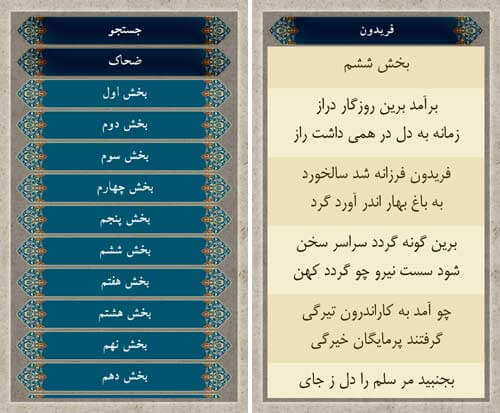 جستجو
ضحاک
بخش اول
بخش دوم
بخش سوم
بخش چهارم
بخش پنجم
بخش ششم
بخش هفتم
بخش هشتم
بخش نهم
بخش دهم
فریدون
بخش ششم
برآمد برین روزگار دراز
زمانه به دل در همی داشت راز
فریدون فرزانه شد سالخورد
به باغ بهار اندر آورد گرد
برین گونه گردد سراسر سخن
شود سست نیرو چو گردد کهن
چو آمد به کاراندرون تیرگی
گرفتند پرمایگان خیرگی
بجنبید مر سلم را دل ز جای